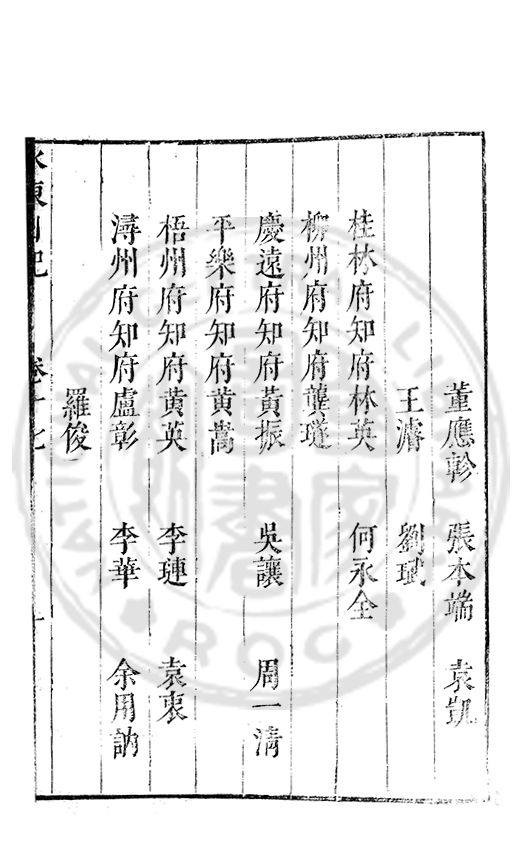 董應軫 張本端 袁凱
王濬 劉珷
桂林府知府林英 何永全
柳州府知府龔璲
慶遠府知府黃振 吳讓 周一清
平樂府知府黃嵩
梧州府知府黃英 李璉 袁衷
潯州府知府盧彰 李華 余用訥
羅俊
水東日記 卷十七